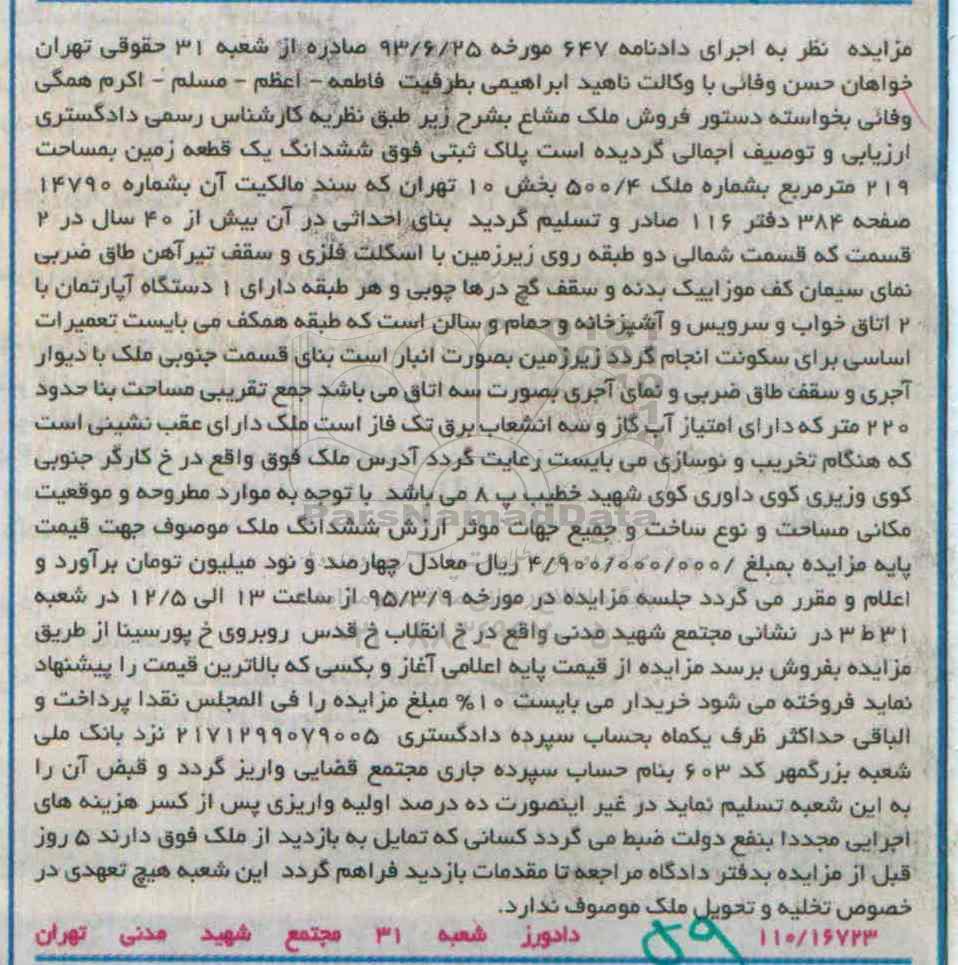 مزایده نظر به اجرای دادنامه ۶۴۷ مورخه ۹۳/۶/۲۵ صادره از شعبه ۳۱ حقوقی تهران
خواهان حسن وفائی با وکالت ناهید ابراهیمی بطرفیت فاطمه - اعظم - مسلم - اکرم همگی
وفائی بخواسته دستور فروش ملک مشاع بشرح زیر طبق نظریه کارشناس رسمی دادگستری
ارزیابی و توصیف اجمالی گردیده است پلاک ثبتی فوق ششدانگ یک قطعه زمین بمساحت
۲۱۹ مترمربع بشماره ملک ۵۰۰/۴ بخش ۱۰ تهران که سند مالکیت آن بشماره ۱۴۷۹۰
صفحه ۳۸۴ دفتر ۱۱۶ صادر و تسلیم گردید بنای احداثی در آن بیش از ۴۰ سال در ۲
قسمت که قسمت شمالی دو طبقه روی زیرزمین با اسکلت فلزی و سقف تیرآهن طاق ضربی
نمای سیمان کف موزاییک بدنه و سقف گچ درها چوبی و هر طبقه دارای ۱ دستگاه آپارتمان با
۲ اتاق خواب و سرویس و آشپزخانه و حمام و سالن است که طبقه همکف می بایست تعمیرات
اساسی برای سکونت انجام گردد زیرزمین بصورت انبار است بنای قسمت جنوبی ملک با دیوار
آجری و سقف طاق ضربی و نمای آجری بصورت سه اتاق می باشد جمع تقریبی مساحت بنا حدود
۲۲۰ متر که دارای امتیاز آب گاز و سه انشعاب برق تک فاز است ملک دارای عقب نشینی است
که هنگام تخریب و نوسازی می بایست رعایت گردد آدرس ملک فوق واقع در خ کارگر جنوبی
کوی وزیری کوی داوری کوی شهید خطیب پ ۸ می باشد با توجه به موارد مطروحه و موقعیت
ParsNamadData
مکانی مساحت و نوع ساخت و جمیع جهات موثر ارزش ششدانگ ملک موصوف جهت قیمت
پایه مزایده بمبلغ ۴/۹۰۰/۰۰۰/۰۰۰/ ریال معادل چهارصد و نود میلیون تومان برآورد و
اعلام و مقرر می گردد جلسه مزایده در مورخه ۹۵/۳/۹ از ساعت ۱۳ الی ۱۲/۵ در شعبه
۳۱ ط ۳ در نشانی مجتمع شهید مدنی واقع در خ انقلاب خ قدس روبروی خ پورسینا از طریق
مزایده بفروش برسد مزایده از قیمت پایه اعلامی آغاز و بکسی که بالاترین قیمت را پیشنهاد
نماید فروخته می شود خریدار می بایست ۱۰% مبلغ مزایده را فی المجلس نقدا پرداخت و
الباقی حداکثر ظرف یکماه بحساب سپرده دادگستری ۲۱۷۱۲۹۹۰۷۹۰۰۵ نزد بانک ملی
شعبه بزرگمهر کد ۶۰۳ بنام حساب سپرده جاری مجتمع قضایی واریز گردد و قبض آن را
به این شعبه تسلیم نماید در غیر اینصورت ده درصد اولیه واریزی پس از کسر هزینه های
اجرایی مجددا بنفع دولت ضبط می گردد کسانی که تمایل به بازدید از ملک فوق دارند ۵ روز
قبل از مزایده بدفتر دادگاه مراجعه تا مقدمات بازدید فراهم گردد این شعبه هیچ تعهدی در
خصوص تخلیه و تحویل ملک موصوف ندارد.
۱۱۰/۱۶۷۲۳ دادورز شعبه ۳۱ مجتمع شهید مدنی تهران